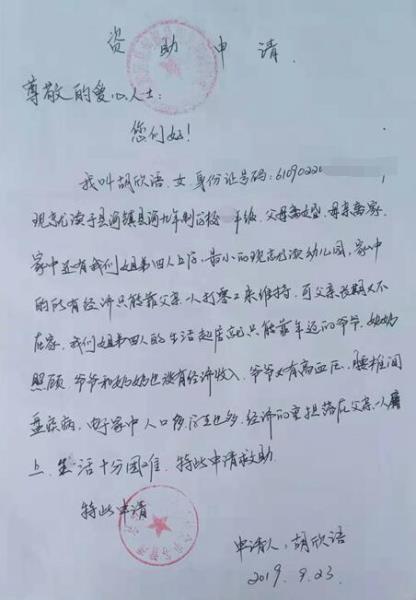 资助申请
尊敬的爱心人士：
您们好！
我叫胡欣语，女，身份证号码：6109022
现就读于县河镇县河九年制学校 年级，父母离婚，母亲离家，
家中还有我们姐弟四人上学，最小的现就读幼儿园，家中
的所有经济只能靠父亲一人打零工来维持，可父亲长期又不
在家，我们姐弟四人的生活起居就只能靠年迈的爷爷、奶奶
照顾，爷爷和奶奶也没有经济收入，爷爷又有高血压，腰椎间
盘疾病，由于家中人口多，学生也多，经济的重担落在父亲一人肩
上，生活十分困难，特此申请救助。
特此申请
申请人：胡欣语
2019.9.23